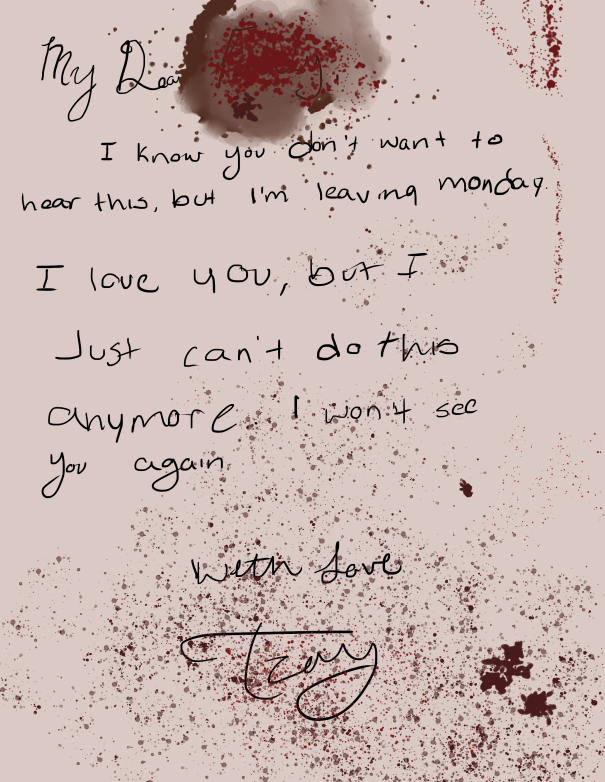 My Dear
I know you don't want to
hear this, but I'm leaving monday.
I love you, but I
Just can't do this
anymore. I won't see
you again.
With Love